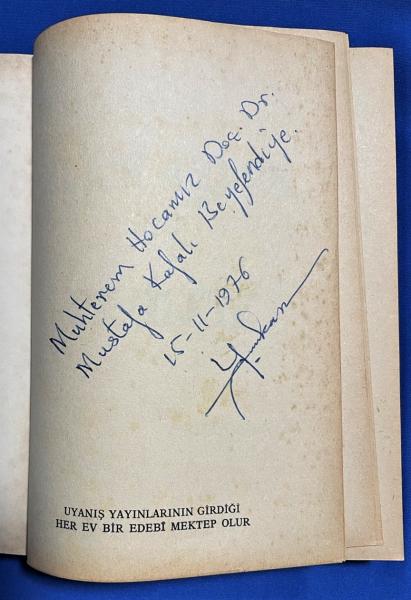 Muhterem Hocamız Doç. Dr.
Mustafa Kafalı Beyefendiye.
15-11-1976
UYANIŞ YAYINLARININ GİRDİĞİ
HER EV BİR EDEBÎ MEKTEP OLUR